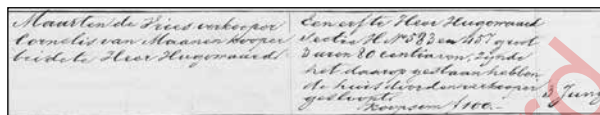 Maarten de Vries verkooper
Cornelis van Maanen kooper
beide te Heer Hugowaard
Een erf te Heer Hugowaard
Sectie H. No 583 en 457 groot
3 aren 80 centiaren, zijnde
het daarop gestaan hebben
de huis door den verkooper
gesloopt.
Koopsom f 100.-
3 Juny